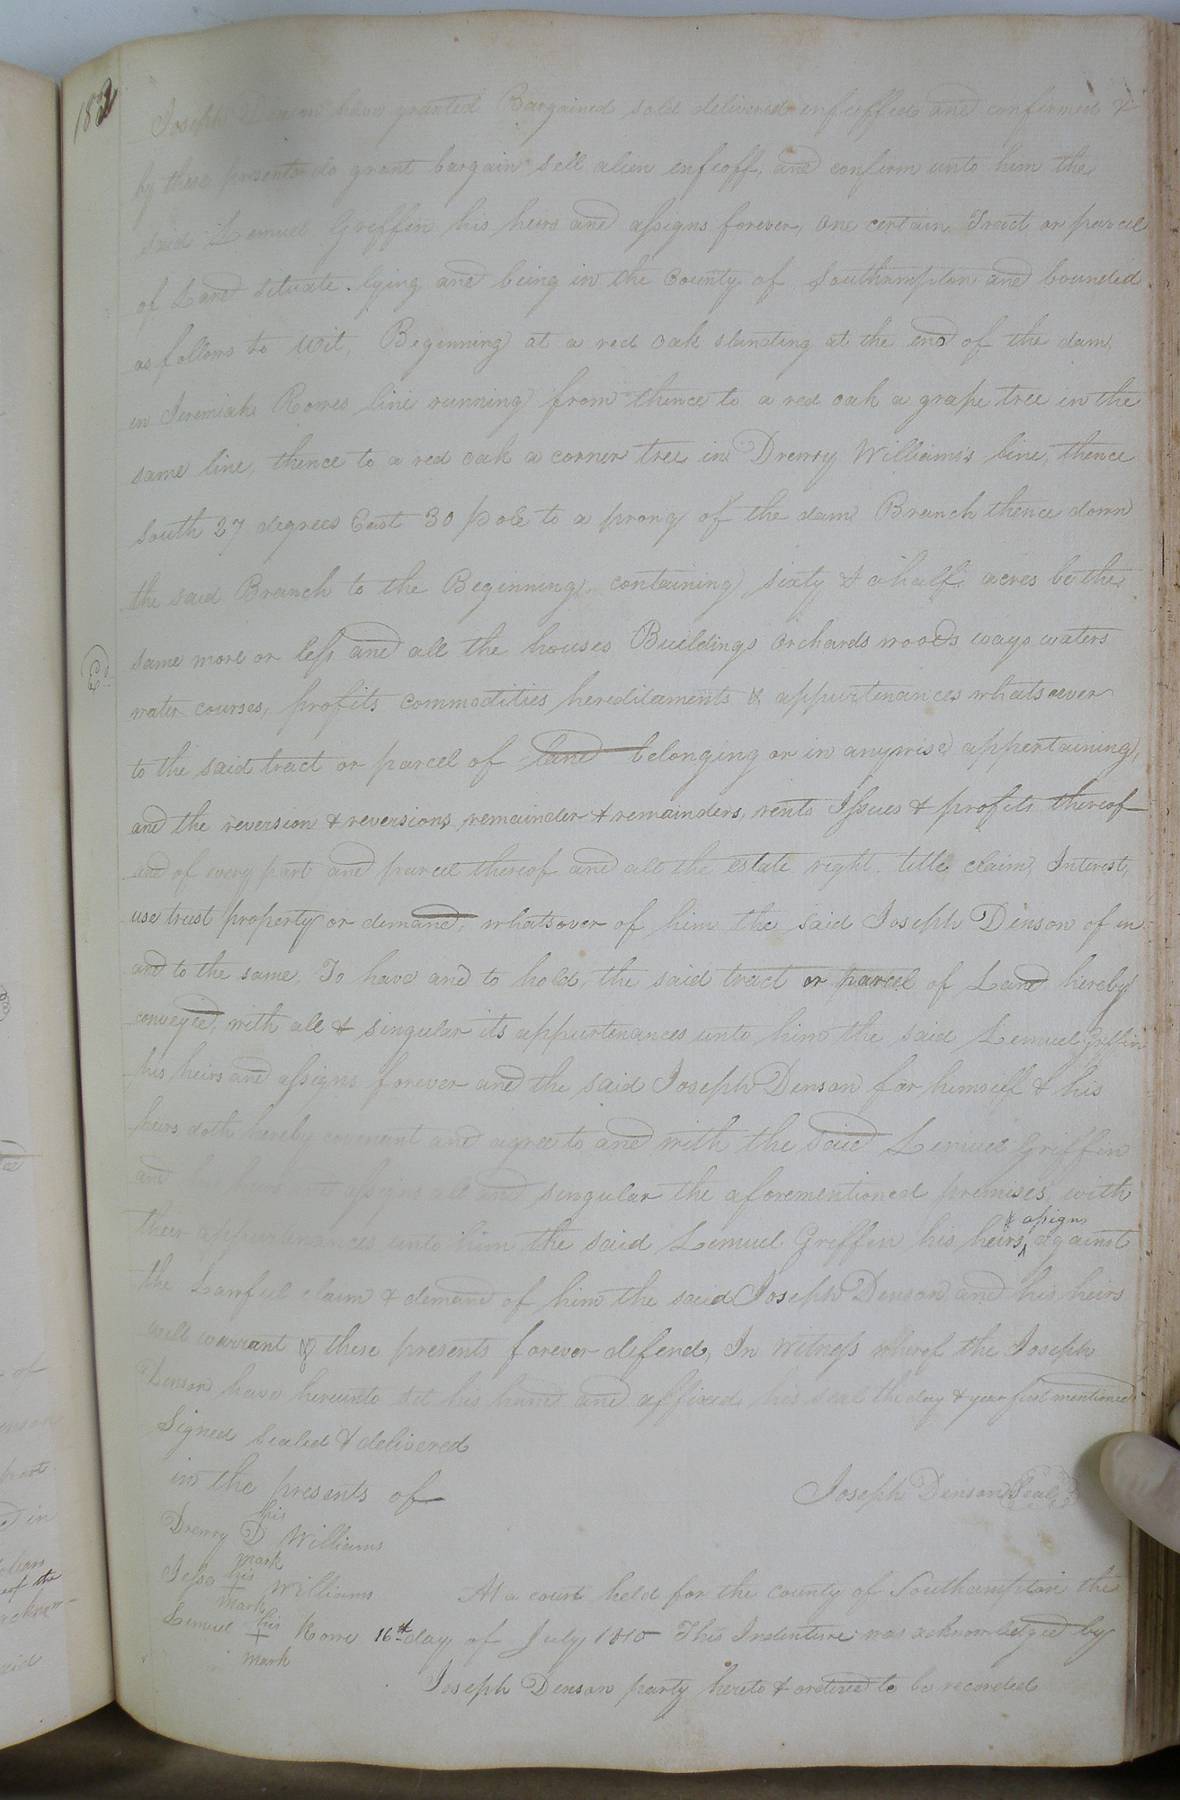 182
Joseph Denson have granted Bargained sold delivered enfeoffed and confirmed &
by these presents do grant bargain sell alien enfeoff, and confirm unto him the
said Lemuel Griffin his heirs and assigns forever, one certain Tract or parcel
of Land situate lying and being in the County of Southampton and bounded
as follows to wit, Beginning at a red oak standing at the end of the dam,
in Jeremiah Rowes line running from thence to a red oak a grape tree in the
same line, thence to a red oak a corner tree in Drewry Williams's line, thence
South 27 degrees East 30 pole to a prong of the dam Branch thence down
the said Branch to the Beginning, containing sixty & a half acres be the
same more or less and all the houses Buildings orchards woods, ways waters
water courses, profits commodities hereditaments & appurtenances whatsoever
to the said tract or parcel of land belonging or in anywise appertaining,
and the reversion & reversions, remainder & remainders, rents Issues & profits thereof
and of every part and parcel thereof and all the estate right, title claim, Interest,
use trust property or demand, whatsover of him the said Joseph Denson of in
and to the same, To have and to hold, the said tract or parcel of Land hereby
conveyed, with all & singular its appurtenances unto him the said Lemuel Griffin
his heirs and assigns forever and the said Joseph Denson for himself & his
heirs doth hereby covenant and agree to and with the said Lemuel Griffin
and his heirs assigns all and singular the aforementioned premises, with
their appurtenances unto him the said Lemuel Griffin his heirs & assigns against
the Lawful claim & demand of him the said Joseph Denson and his heirs
will warrant & these presents forever defend, In Witness whereof the Joseph
Denson have hereunto set his hand and affixed his seal the day & year first mentioned
Signed Sealed & delivered
in the presents of
Joseph Denson Seal
his
Drewry D Williams
mark
his
+ Williams
mark
Lemuel his + Rowe
mark
At a court held for the county of Southampton the
16th day of July 1810 This Indenture was acknowledged by
Joseph Denson party hereto & ordered to be recorded